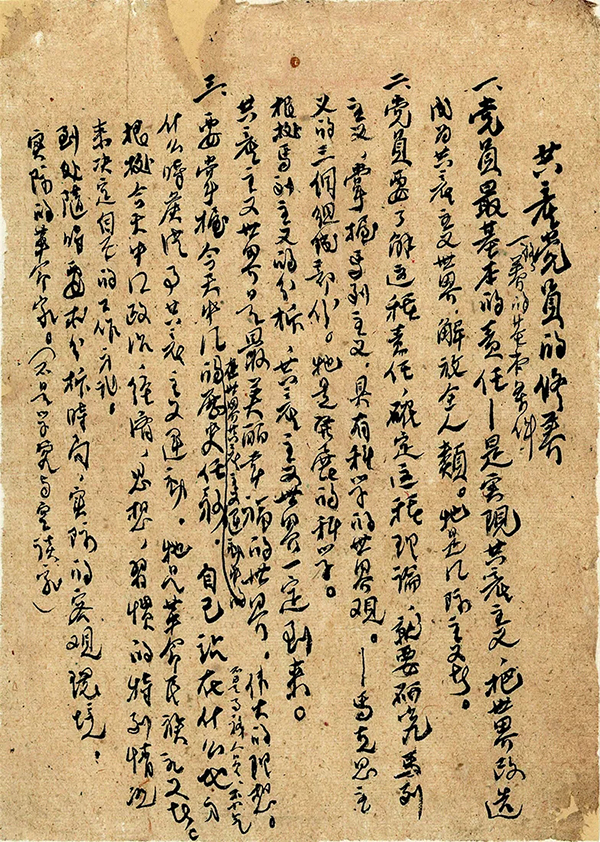 共产党员的修养
一、修养的基本条件
一、党员最基本的责任—是实现共产主义，把世界改造
成为共产主义世界，解放全人类。他是国际主义者。
二、党员要了解这种责任，确定这种理论，就要研究马列
主义，掌握马列主义，具有科学的世界观。—马克思主
义的三个组成部份。他是发展的科学。
根据马列主义的分析，共产主义世界一定到来。
共产主义世界是最美丽幸福的世界，伟大的理想。
三、要掌握今天中国的历史任务，自己站在什么地方
在世界共产主义运动中的
什么时候从事共产主义运动。他是革命民族主义者。
根据今天中国政治，经济，思想，习惯的特别情况
来决定自己的工作方式。
到处随时要求分析时局，实际的客观环境，
实际的革命家。（不是学究与空谈家）